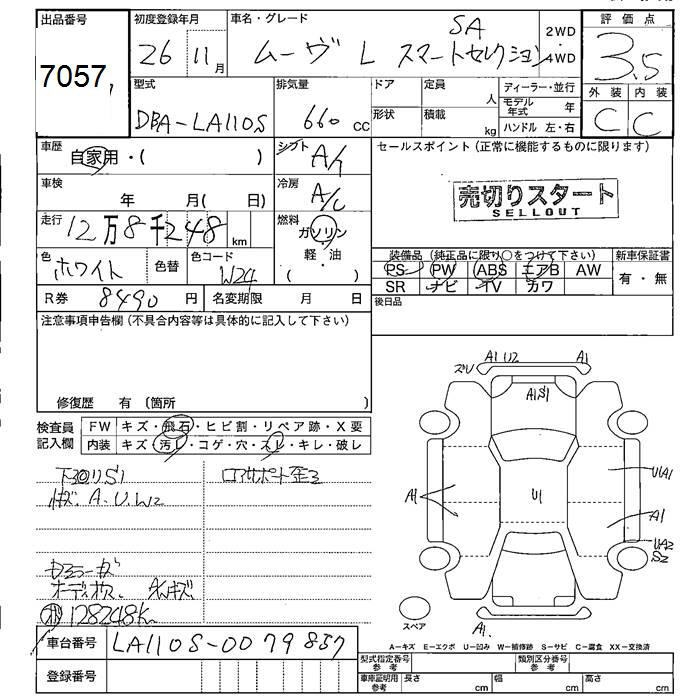 出品番号 初度登録年月 車名・グレード 評価点
7057, 26 11月 ムーヴ L SA スマートセレクション 2WD・4WD 3.5
外装 内装
C C
型式 排気量 ドア 定員 人 ディーラー・並行
DBA-LA110S 660 cc 形状 積載 kg モデル年式 年
ハンドル 左・右
車歴 自家用・( ) シフト A/T セールスポイント (正常に機能するものに限ります)
車検 年 月( 日) 冷房 A/C
売切りスタート
SELLOUT
走行 12万8千248km 燃料 ガソリン・軽・油 ( )
色 ホワイト 色替 色コード W24
装備品 (純正品に限り○をつけて下さい) 新車保証書
PS PW ABS エアB AW 有・無
SR ナビ TV カワ
R券 8490円 名変期限 月 日 後日品
注意事項申告欄 (不具合内容等は具体的に記入して下さい)
修復歴 有 (箇所 )
検査員記入欄 FW キズ・飛石・ヒビ割・リペア跡・X要
内装 キズ・汚レ・コゲ・穴・スレ・キレ・破レ
下回りS1 ロアサポート歪3
キズ. A.U.W2
オーディオレス
128248km
車台番号 LA110S-0079857
登録番号
ズレ A1 U2 A1
A1S1
A1 U1 UA1
A1
UA2
S2
スペア
A1.
A−キズ E−エクボ U−凹み W−補修跡 S−サビ C−腐食 XX−交換済
型式指定番号 参考 類別区分番号 参考
車庫証明用 参考 長さ cm 幅 cm 高さ cm